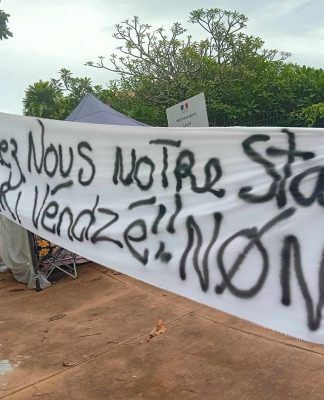 ez Nous NOTRE Sta
i VéNdzé!! NØN